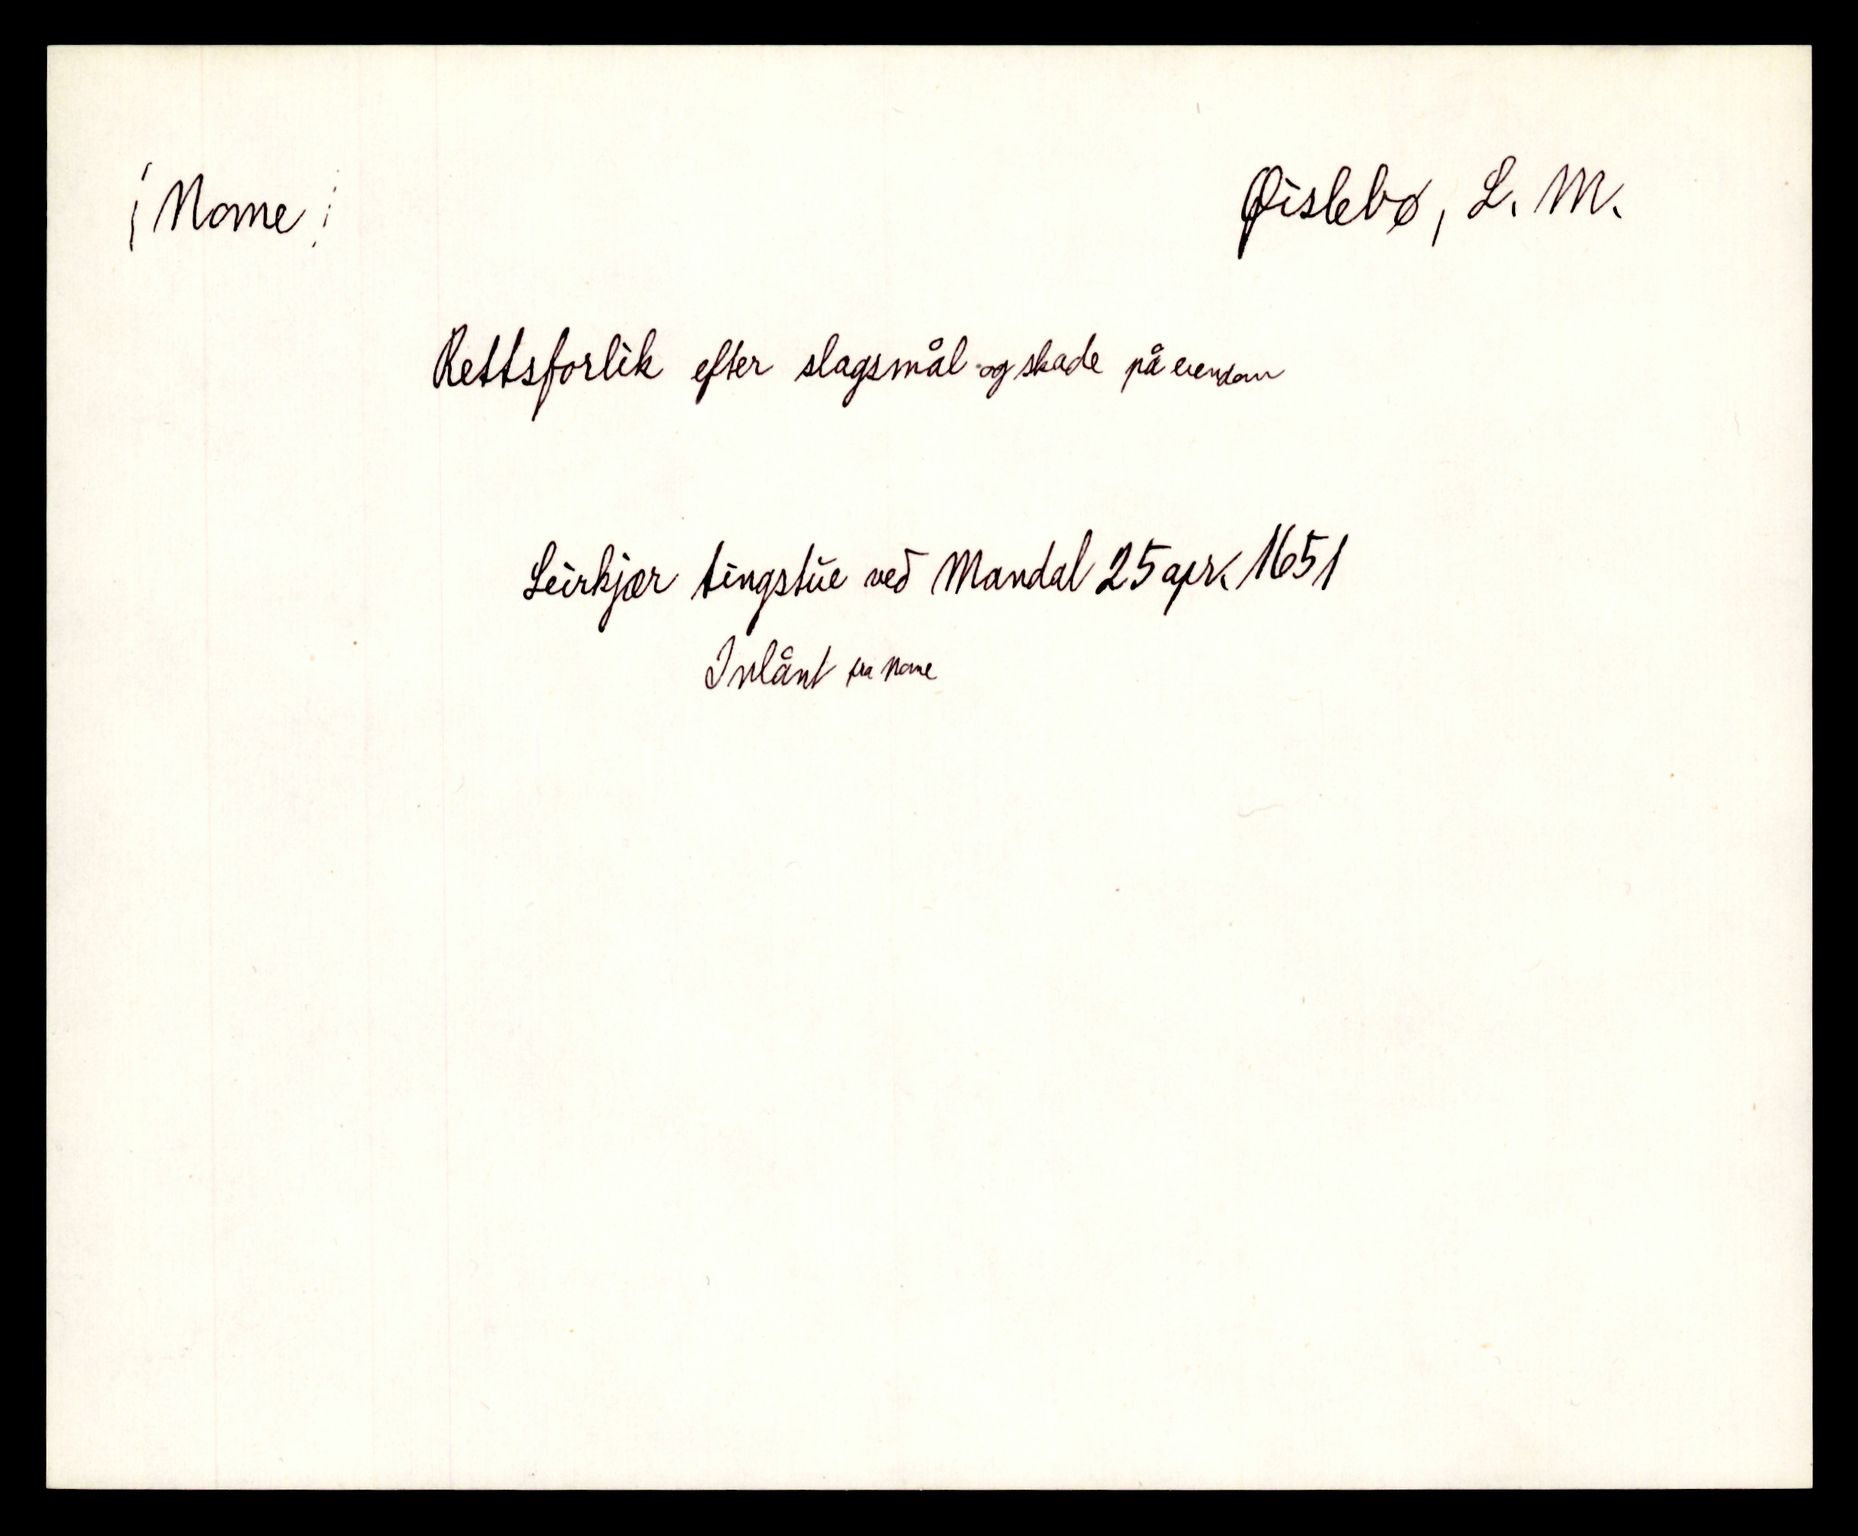 (Nome) Øislebø, L. M.
Rettsforlik efter slagsmål og skade på eiendom
Leirkjær tingstue ved Mandal 25 apr. 1651
Innlånt fra Nome